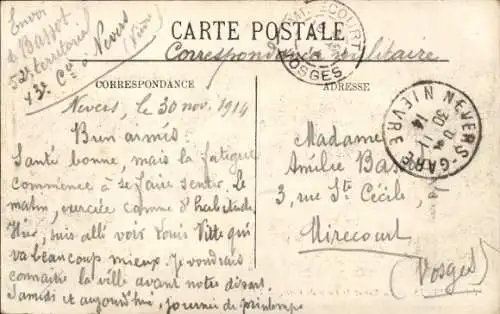 Envoi
de Bassot
52e territorial
43e Cie à Nevers
(Nièvre)
CARTE POSTALE
Correspondance militaire
MIRECOURT
VOSGES
CORRESPONDANCE
ADRESSE
NEVERS-GARE
30 11
14
NIEVRE
Nevers, le 30 nov. 1914
Bien aimés.
Santé bonne, mais la fatigue
commence à se faire sentir. Le
matin, exercice comme d'habitude
Hier, suis allé voir Louis Vitte qui
va beaucoup mieux. Je voudrais
connaître la ville avant notre départ.
Samedi et aujourd'hui, journée de printemps
Madame
Amélie
3, rue Ste Cécile,
Mirecourt
(Vosges)